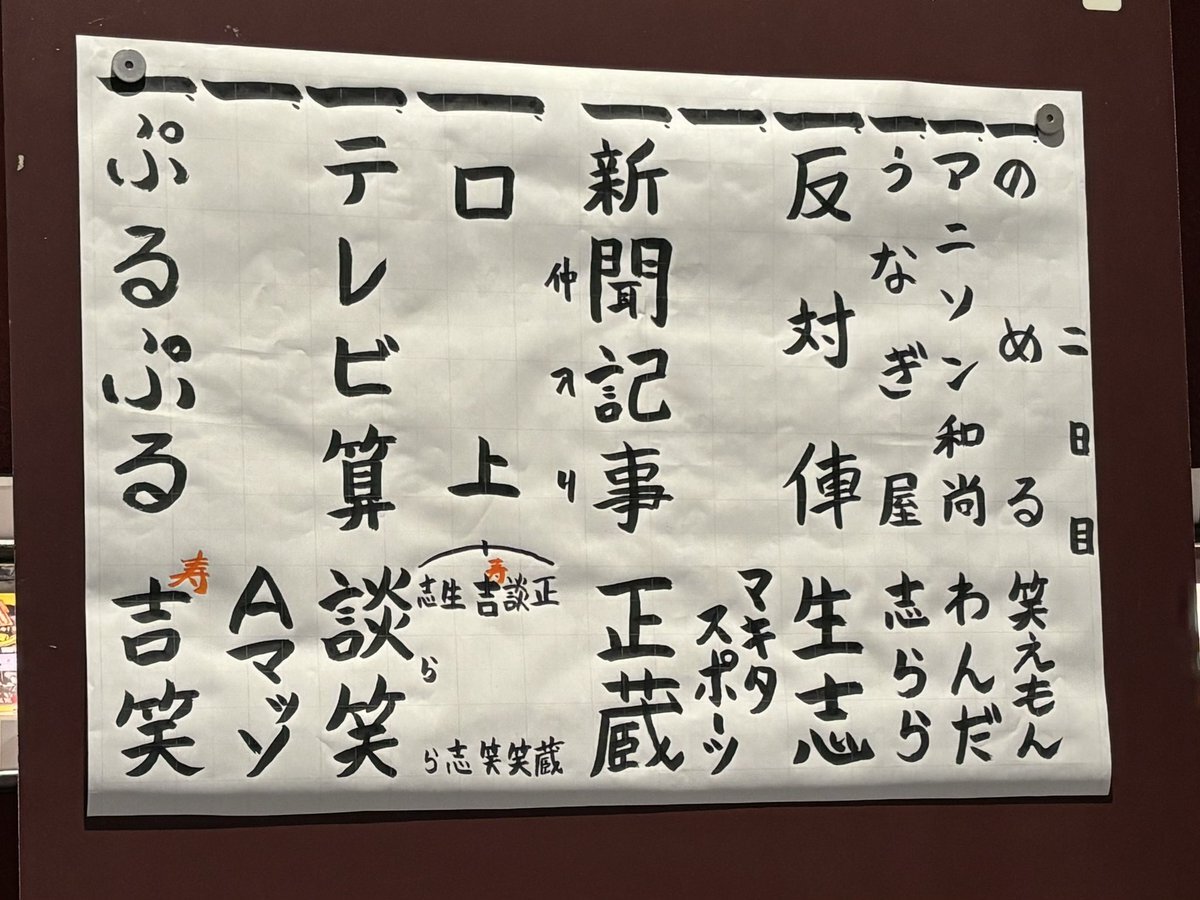 二日目
一 のめる 笑えもん
一 アニソン和尚 わんだ
一 うなぎ屋 志らら
一 反対俥 生志
一 マキタ
スポーツ
一 新聞記事 正蔵
仲入り
一 口上
正蔵
談笑
寿 吉笑
生志
志らら
一 テレビ算 談笑
一 Aマッソ
一 ぷるぷる 寿 吉笑